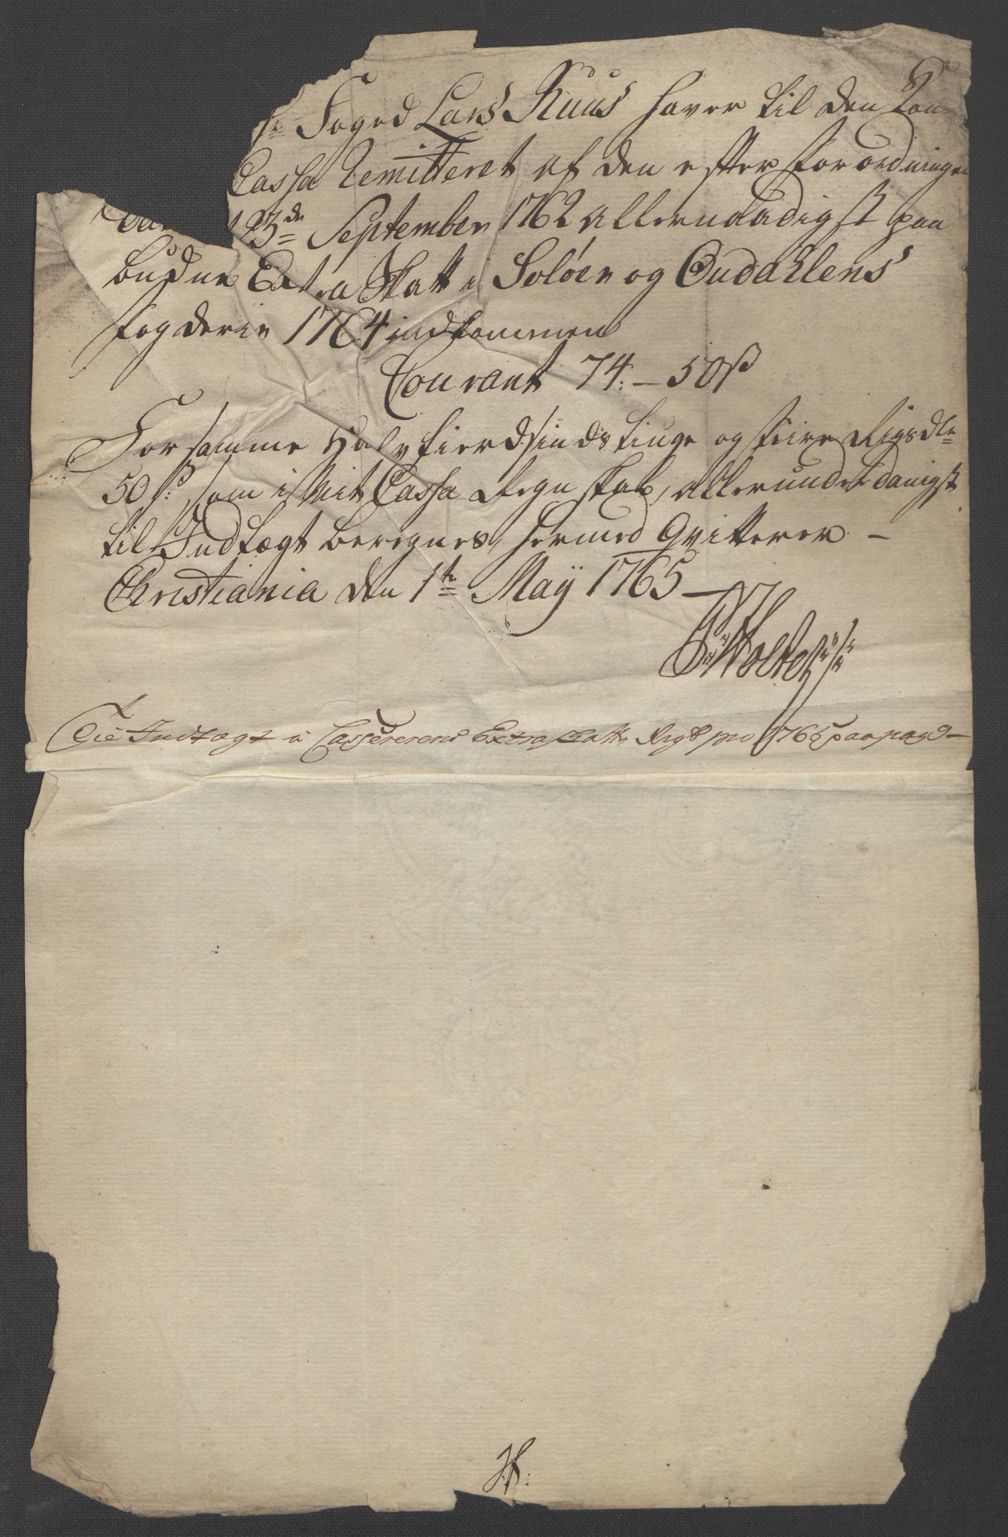 Hr Foged Lars Ruus haver til den Kon
Cassa Remitteret af den efter Forordningen
23de September 1762 allernaadigst paa
budne Extra Skatt i Soløer og Oudahlens
Fogderie 1764 indkommen
Courant 74: – 50 s
For samme Halvfierdsinds tiuge og fiire Rigsdlr
50 s: som i Mit Cassa Regnskab, allerunderdanigst
til Indtægt beregnes, hermed Qvitterer –
Christiania den 1te Maÿ 1765 –
Til Indtægt i Cassererens Extraskatts Regsk pro 1765 paa pag